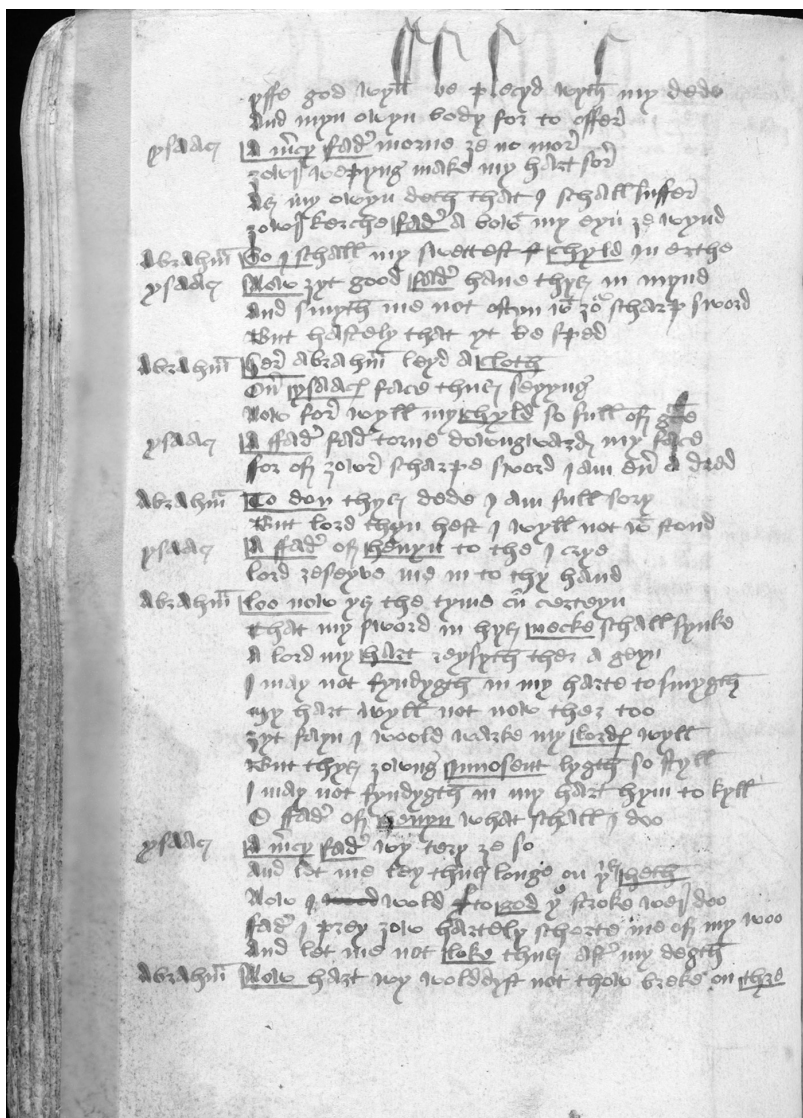 yffe god wyll be plecyd wyth my dede
And myn owyn body for to offer
ysaac A mcy fader morne ze no mor
zowr wepyng make my hart sor
As my owyn deth that I schall suffer
zowr kerche fader a bowt my eyn ze wynd
Abraham So I schall my swettest chyld in erthe
ysaac Now zyt good fader haue thys in mynd
And smyth me not oftyn wt zor scharp sword
But hastely that yt be sped
Abraham Her Abraham leyd a cloth
On ysaacs face thus seyyng
Now for wyll my chyld so full of grace
ysaac A ffader fader torne downgward my face
for of zowr scharpe sword I am eur a dred
Abraham To don thys dede I am full sory
But lord thyn hest I wyll not wt stond
ysaac A ffader of heuyn to the I crye
lord reseyve me in to thy hand
Abraham loo now ys the tyme cum certeyn
That my sword in hys necke schall synke
A lord my hart reysyth ther a geyn
I may not fyndygth in my harte to smygth
My hart wyll not now ther too
zyt fayn I woold warke my lords wyll
But thys zowng innosent lygth so styll
I may not fyndygth in my hart hym to kyll
O ffader of heuyn what schall I doo
ysaac A mcy fader wy tery ze so
And let me ley thus longe on ys heth
Now I wold to god ye stroke wer doo
fader I prey zow hartely schorte me of my woo
And let me not loke thus after my degth
Abraham Now hart wy woldyst not thow breke on thre